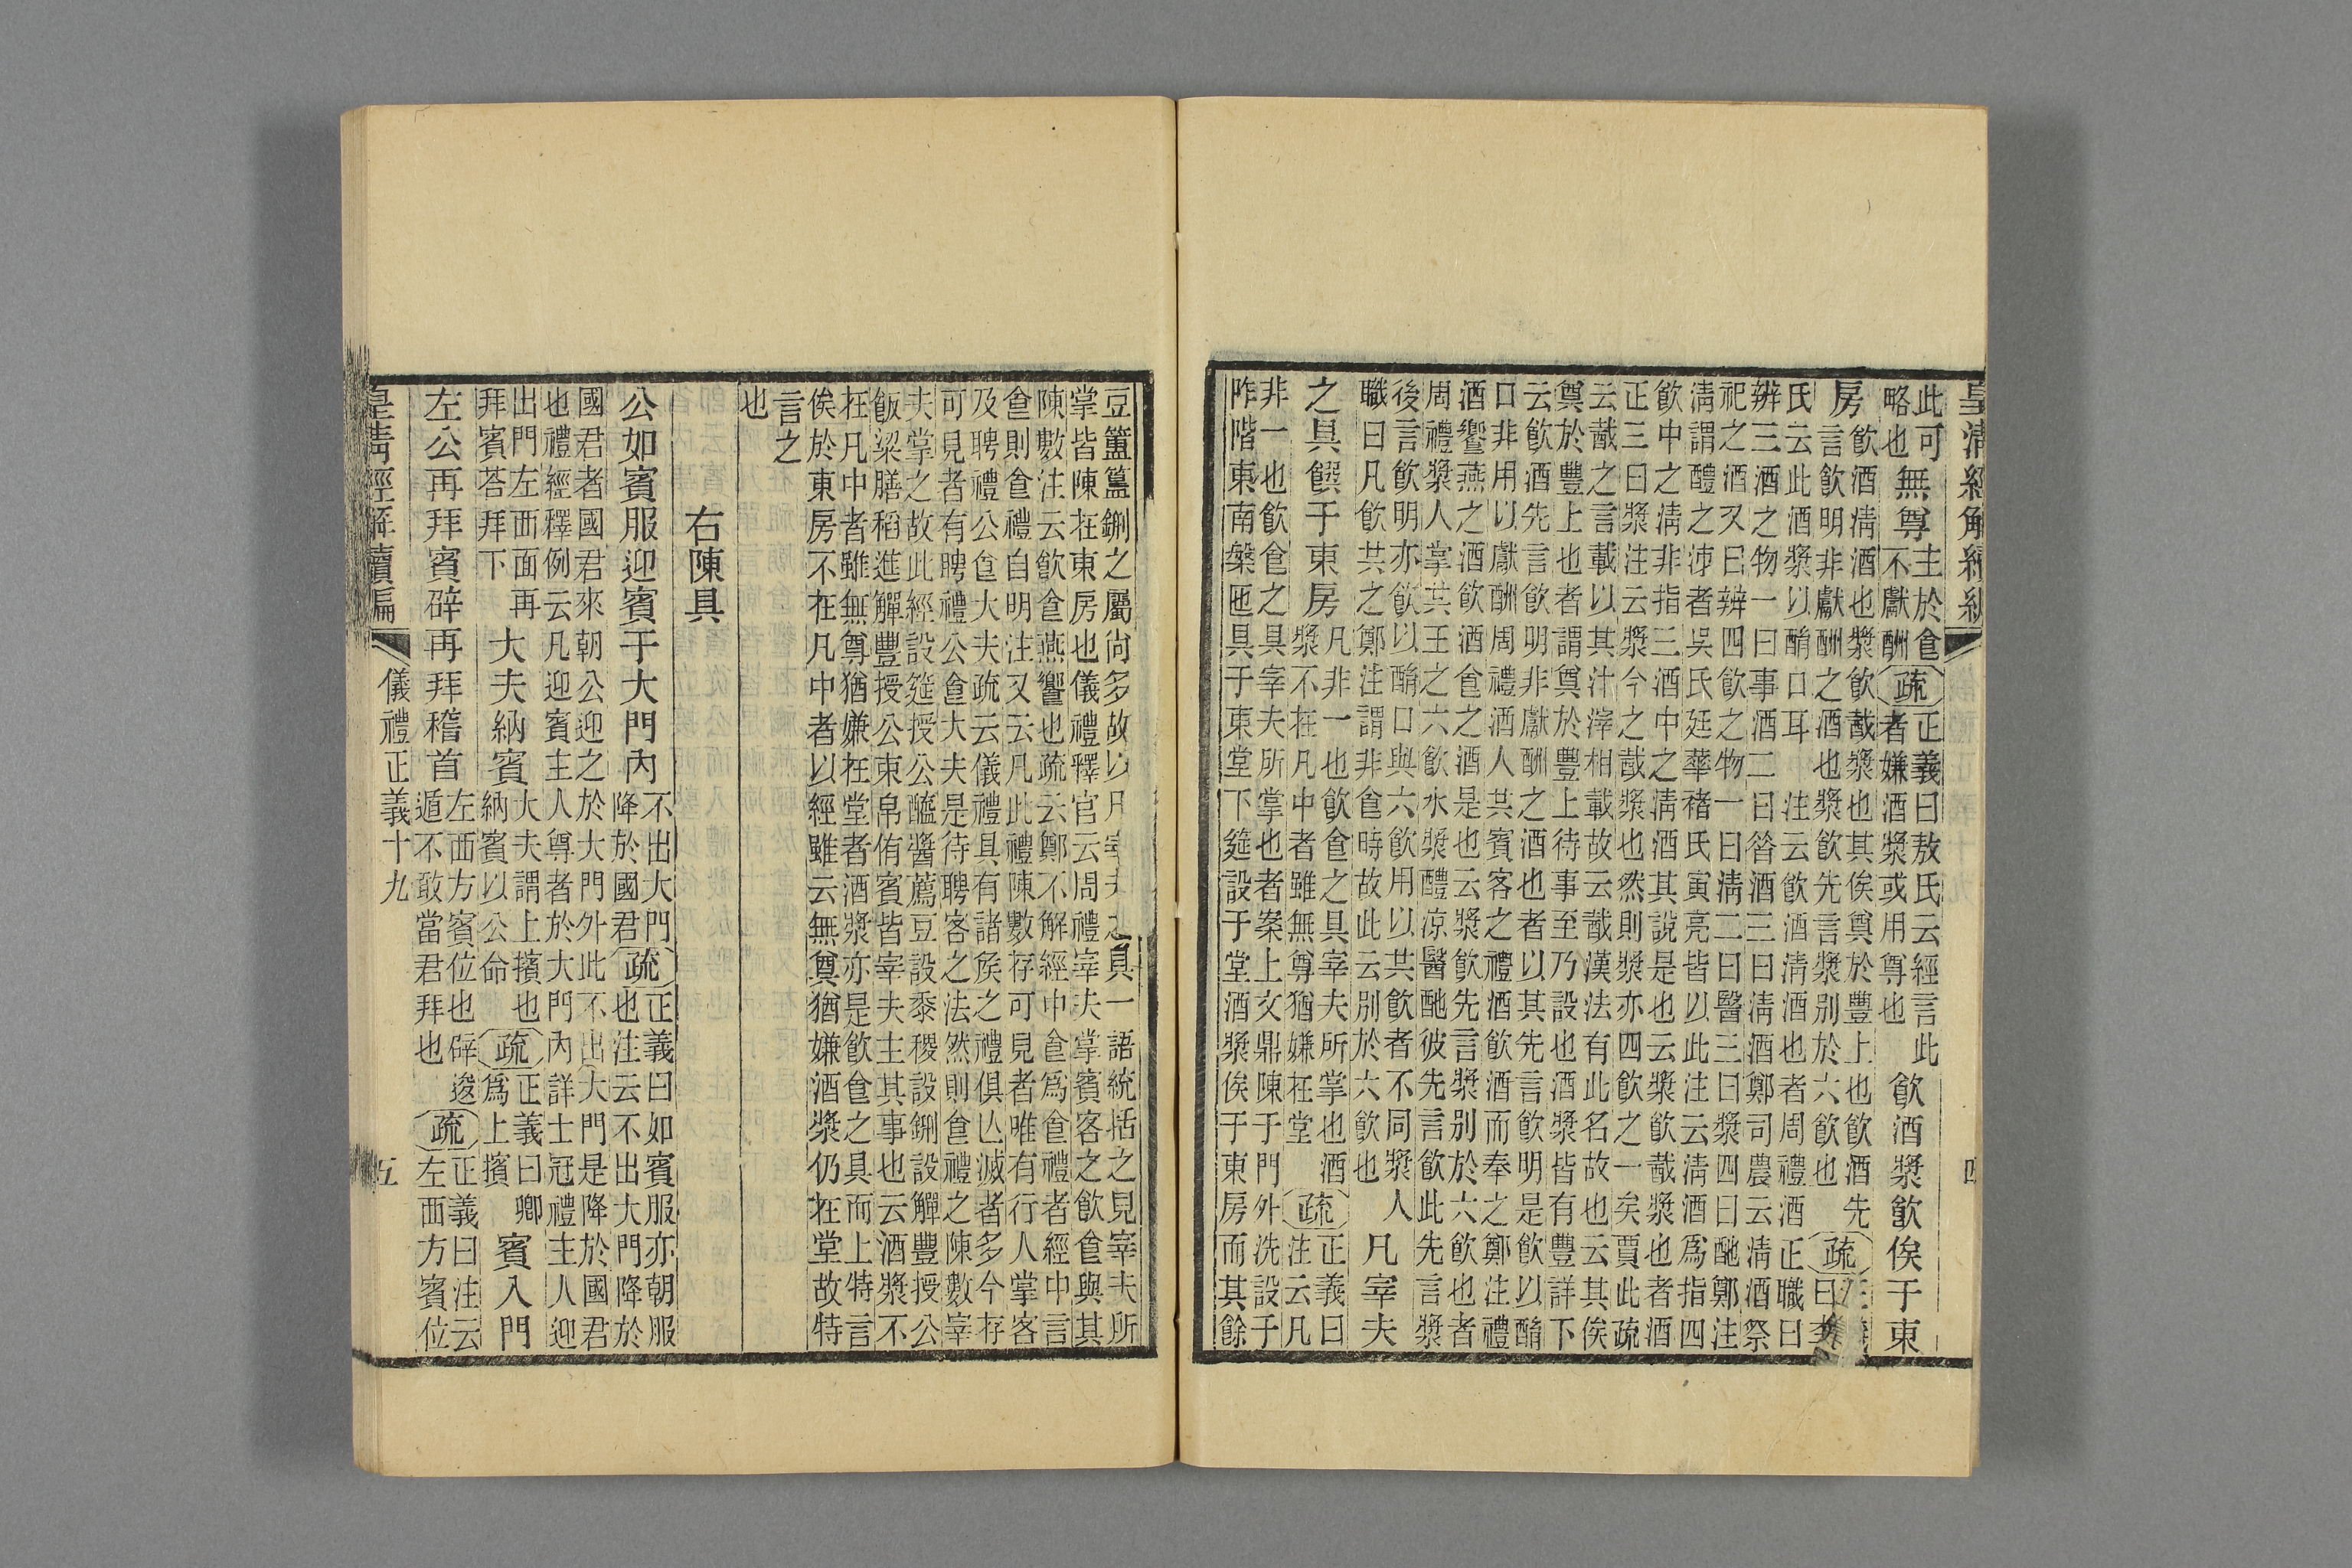 皇清經解續編
四
此可
略也
無尊
主於食
不獻酬
疏
正義曰敖氏云經言此
者嫌酒漿或用尊也
飲酒漿飲俟于東
房
飲酒清酒也漿飲酨漿也其俟奠於豐上也飲酒先
言飲明非獻酬之酒也漿飲先言漿別於六飲也
疏
曰李
氏云此酒漿以酳口耳 注云飲酒清酒也者周禮酒正職曰
辨三酒之物一曰事酒二曰昝酒三曰清酒鄭司農云清酒祭
祀之酒又曰辨四飲之物一曰清二曰醫三曰漿四曰酏鄭注
清謂醴之泲者吳氏廷華褚氏寅亮皆以此注云清酒爲指四
飲中之清非指三酒中之清酒其說是也云漿飲酨漿也者酒
正三曰漿注云漿今之酨漿也然則漿亦四飲之一矣賈此疏
云酨之言載以其汁滓相載故云酨漢法有此名故也云其俟
奠於豐上也者謂奠於豐上待事至乃設也酒漿皆有豐詳下
云飲酒先言飲明非獻酬之酒也者以其先言飲明是飲以酳
口非用以獻酬周禮酒人共賓客之禮酒飲酒而奉之鄭注禮
酒饗燕之酒飲酒食之酒是也云漿飲先言漿別於六飲也者
周禮漿人掌共王之六飲水漿醴涼醫酏彼先言飲此先言漿
後言飲明亦飲以酳口與六飲用以共飲者不同漿人
職曰凡飲共之鄭注謂非食時故此云別於六飲也
凡宰夫
之具饌于東房
凡非一也飲食之具宰夫所掌也酒
漿不在凡中者雖無尊猶嫌在堂
疏
正義曰
注云凡
非一也飲食之具宰夫所掌也者案上文鼎陳于門外洗設于
阼階東南槃匜具于東堂下筵設于堂酒漿俟于東房而其餘
豆簠簋鉶之屬尚多故以凡宰夫之具一語統括之見宰夫所
掌皆陳在東房也儀禮釋官云周禮宰夫掌賓客之飲食與其
陳數注云飲食燕饗也疏云鄭不解經中食爲食禮者經中言
食則食禮自明注又云凡此禮陳數存可見者唯有行人掌客
及聘禮公食大夫疏云儀禮具有諸侯之禮俱亾滅者多今存
可見者有聘禮公食大夫是待聘客之法然則食禮之陳數宰
夫掌之故此經設筵授公醯醬薦豆設黍稷設鉶設觶豐授公
飯粱膳稻進觶豐授公束帛侑賓皆宰夫主其事也云酒漿不
在凡中者雖無尊猶嫌在堂者酒漿亦是飲食之具而上特言
俟於東房不在凡中者以經雖云無尊猶嫌酒漿仍在堂故特
言之
也
右陳具
公如賓服迎賓于大門內
不出大門
降於國君
疏
正義曰如賓服亦朝服
也注云不出大門降於
國君者國君來朝公迎之於大門外此不出大門是降於國君
也禮經釋例云凡迎賓主人尊者於大門內詳士冠禮主人迎
出門左西面再
拜賓荅拜下
大夫納賓
大夫謂上擯也
納賓以公命
疏
正義曰卿
爲上擯
賓入門
左公再拜賓辟再拜稽首
左西方賓位也辟逡
遁不敢當君拜也
疏
正義曰注云
左西方賓位
皇清經解續編
儀禮正義十九
五